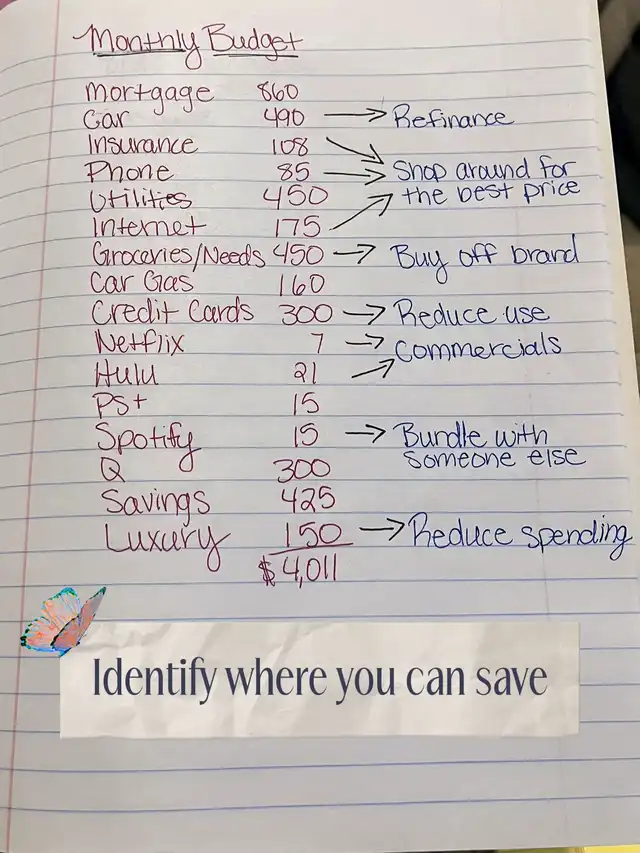 Monthly Budget
Mortgage 860
Car 490 → Refinance
Insurance 108
Phone 85 → Shop around for
Utilities 450 the best price
Internet 175
Groceries/Needs 450 → Buy off brand
Car Gas 160
Credit Cards 300 → Reduce use
Netflix 7 → Commercials
Hulu 21
PS+ 15
Spotify 15 → Bundle with
Q 300 someone else
Savings 425
Luxury 150 → Reduce spending
$4,011
Identify where you can save